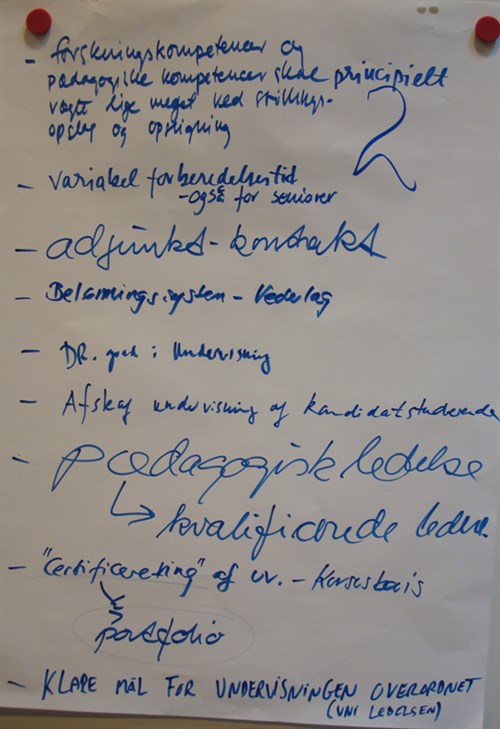 - forskningskompetencer og
pædagogiske kompetencer skal principielt
vægte lige meget ved stillings-
opslag og opringning
2
- variabel forberedelsestid
- også for seniorer
- adjunkt-kontrakt
- Belønningssystem - Vederlag
- DR. pæd i Undervisning
- Afskaf undervisning af kandidatstuderende
- pædagogisk ledelse
↳ kvalificerede ledere.
- "Certificering" af uv. - Kursusbevis
portfolio
- KLARE MÅL FOR UNDERVISNINGEN OVERORDNET
(UNI LEDELSEN)